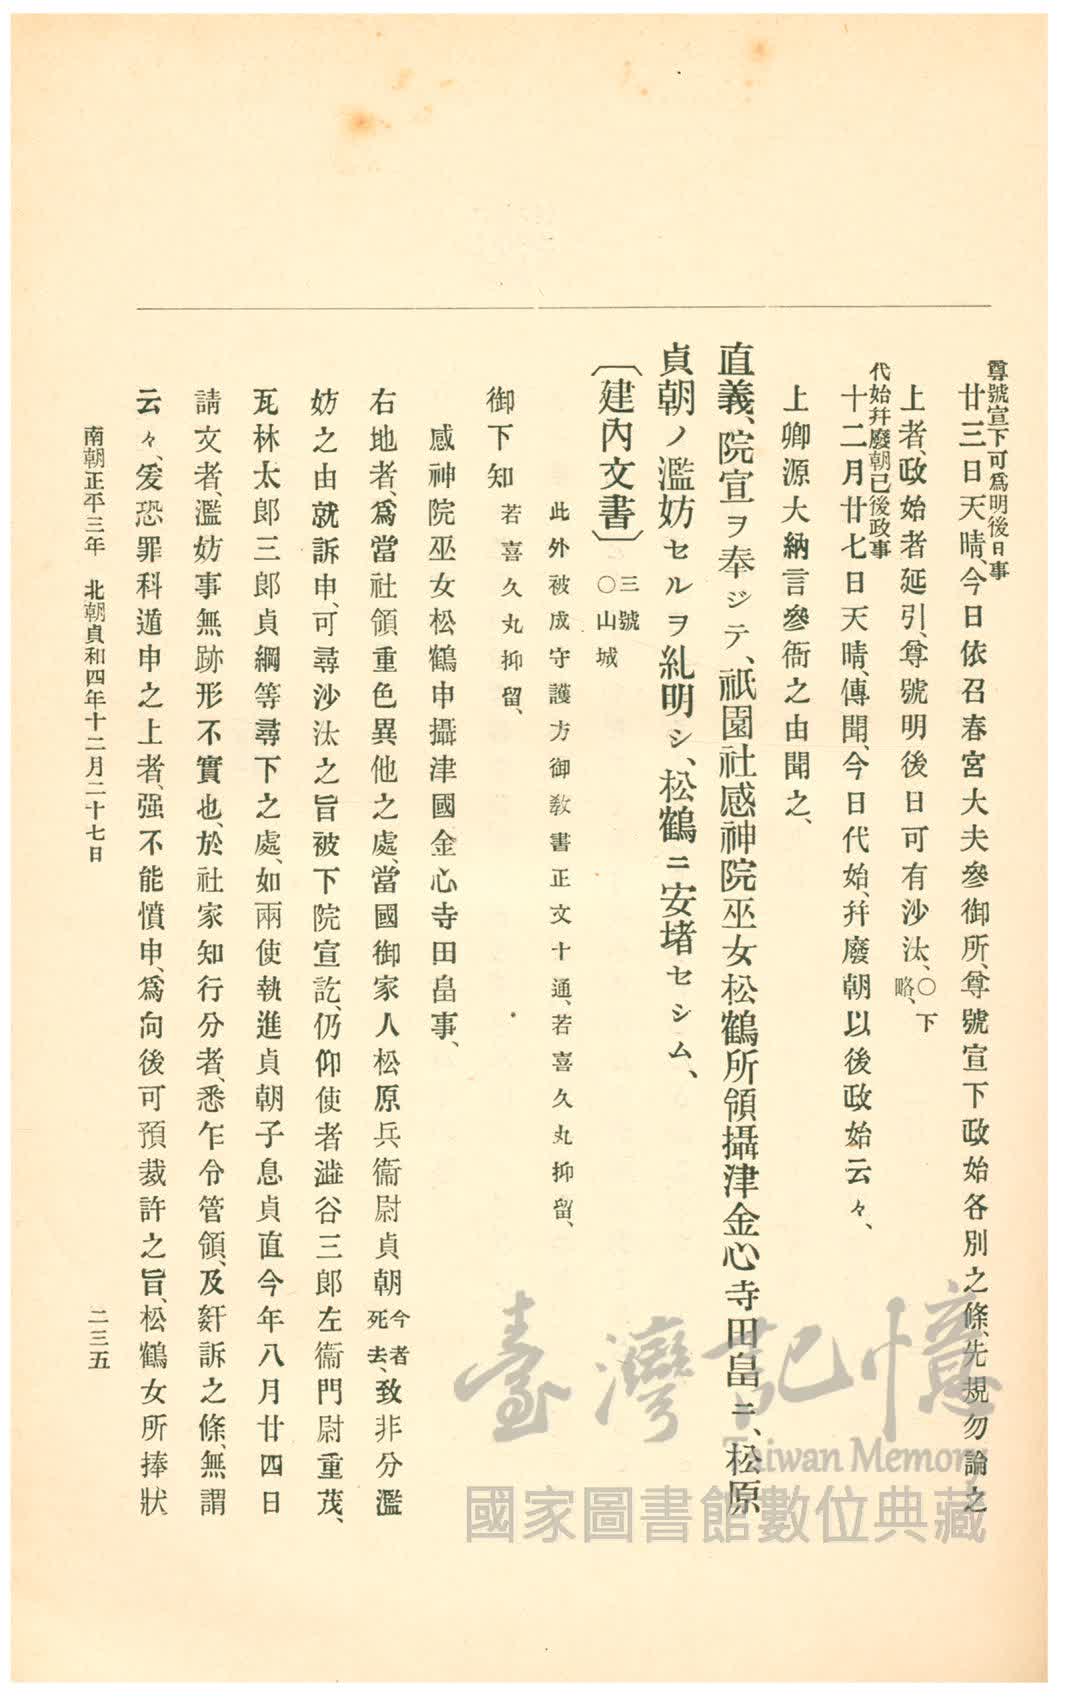 尊號宣下可爲明後日事
廿三日天晴、今日依召春宮大夫參御所、尊號宣下政始各別之條、先規勿論之
上者、政始者延引、尊號明後日可有沙汰、○下略、
代始幷廢朝已後政事
十二月廿七日天晴、傳聞、今日代始、幷廢朝以後政始云々、
上卿源大納言參衙之由聞之、
直義、院宣ヲ奉ジテ、祇園社感神院巫女松鶴所領攝津金心寺田畠ニ、松原
貞朝ノ濫妨セルヲ糺明シ、松鶴ニ安堵セシム、
〔建內文書〕三號○山城
此外被成守護方御敎書正文十通、若喜久丸抑留、
御下知若喜久丸抑留、
感神院巫女松鶴申攝津國金心寺田畠事、
右地者、爲當社領重色異他之處、當國御家人松原兵衞尉貞朝今者死去、致非分濫
妨之由就訴申、可尋沙汰之旨被下院宣訖、仍仰使者澁谷三郎左衞門尉重茂、
瓦林太郎三郎貞綱等尋下之處、如兩使執進貞朝子息貞直今年八月廿四日
請文者、濫妨事無跡形不實也、於社家知行分者、悉乍令管領、及姧訴之條、無謂
云々、爰恐罪科遁申之上者、强不能憤申、爲向後可預裁許之旨、松鶴女所捧狀
南朝正平三年　北朝貞和四年十二月二十七日
二三五
臺灣記憶
Taiwan Memory
國家圖書館數位典藏